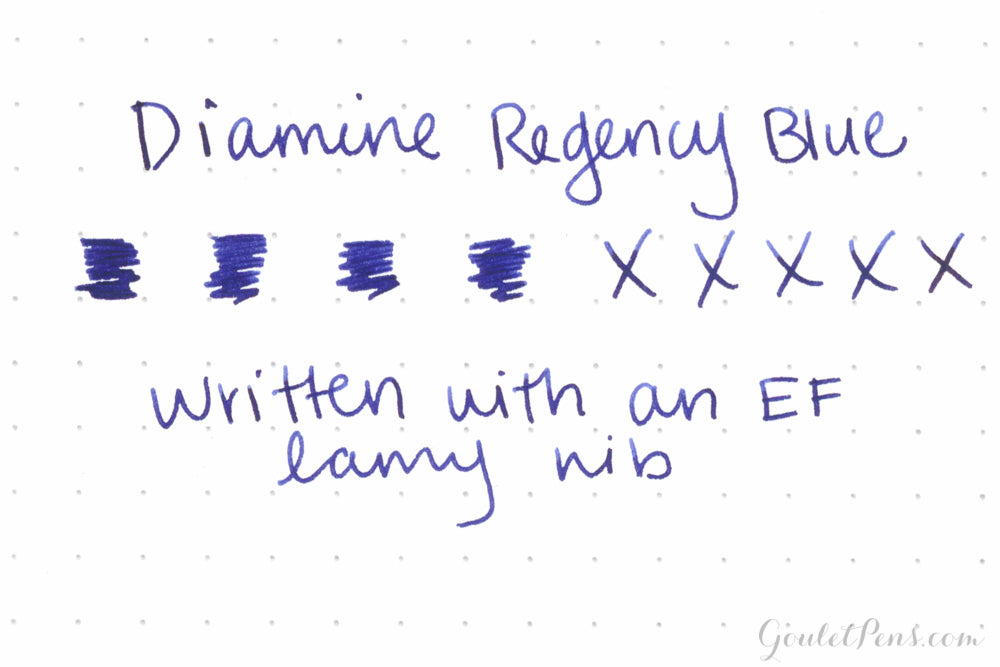 Diamine Regency Blue
X X X X X
written with an EF
lamy nib
GouletPens.com